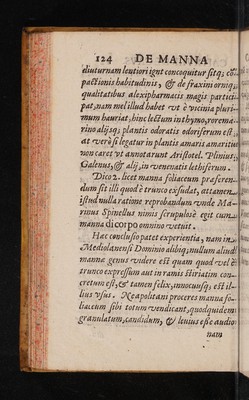 124 DE MANNA
diuturnam leutiori igni concoquitur sitq; cõ
pactionis habitudinis, & de fraxini orniq,
qualitatibus alexipharmacis magis partici
pat, nam mel illud habet vt è vicinia pluri-
mum hauriat, hinc lectum in thymo, rorema
rino alijsq; plantis odoratis odoriferum est,
at verò si legatur in plantis amaris amaritu
non caret vt annotarunt Aristotel. Plinius,
Galenus, & alij, in venenatis lethiferum.
Dico 2. licet manna foliaceum præferen-
dum sit illi quod è trunco exsudat, attamen
istud nulla ratione reprobandum vnde Ma-
rinus Spinellus nimis scrupulosè egit cum
manna di corpo omnino vetuit.
Hæc conclusio patet experientia, nam in
Mediolanensi Dominio alibiq; nullum aliud
mannæ genus videre est quam quod vel è
trunco expressum aut in ramis stiriatim con-
cretum est, & tamen felix, innocuusq; est il-
lius vsus. Neapolitani proceres manna fo-
liaceum sibi totum vendicant, quodquidem
granulatum, candidum, & leuius esse audio
nam